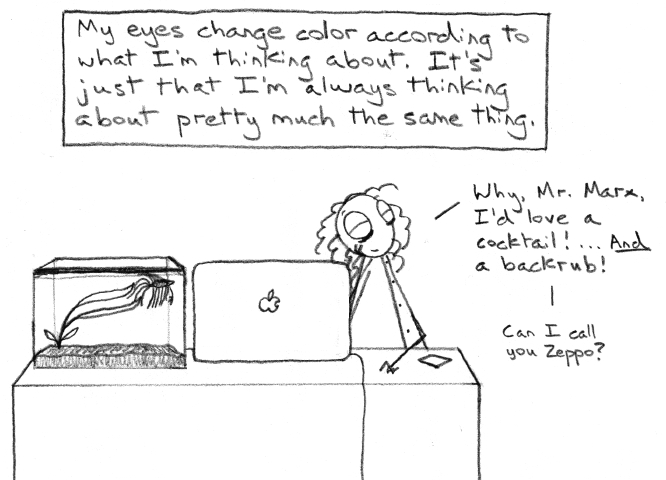 My eyes change color according to
what I'm thinking about. It's
just that I'm always thinking
about pretty much the same thing.
Why, Mr. Marx,
I'd love a
cocktail!... And
a backrub!
Can I call
you Zeppo?